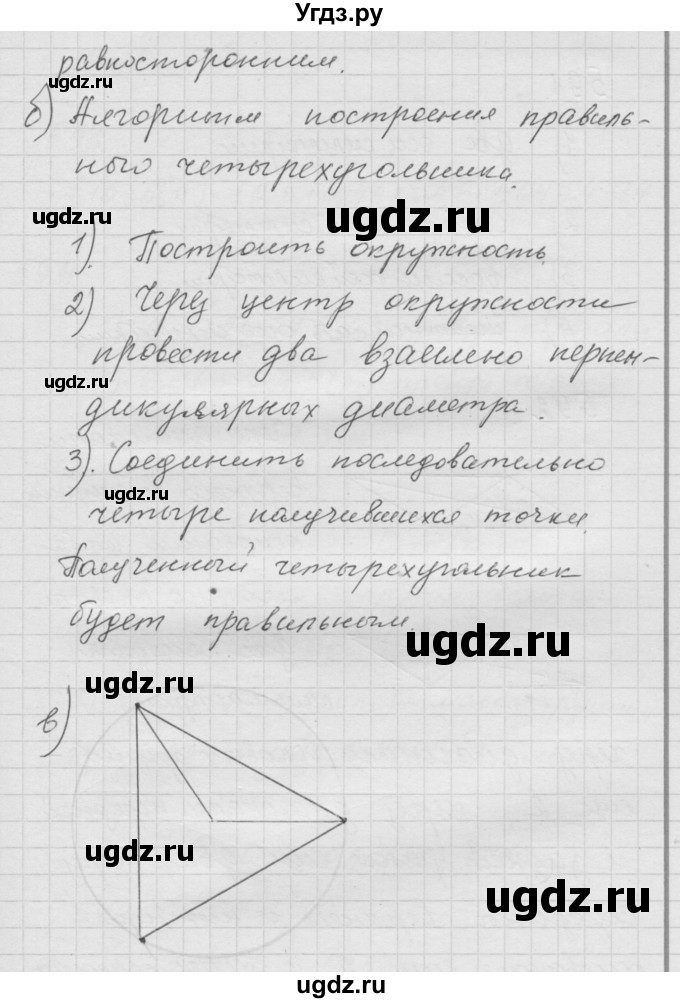 Угдз.ру
равносторонним.
б) Алгоритм построения правиль-
ного четырехугольника.
1). Построить окружность.
2) Через центр окружности
провести два взаимно перпен-
дикулярных диаметра.
3). Соединить последовательно
четыре получившиеся точки.
Полученный четырехугольник
будет правильным.
в)
ugdz.ru
ugdz.ru
ugdz.ru
ugdz.ru
ugdz.ru
ugdz.ru
ugdz.ru
ugdz.ru
ugdz.ru
ugdz.ru